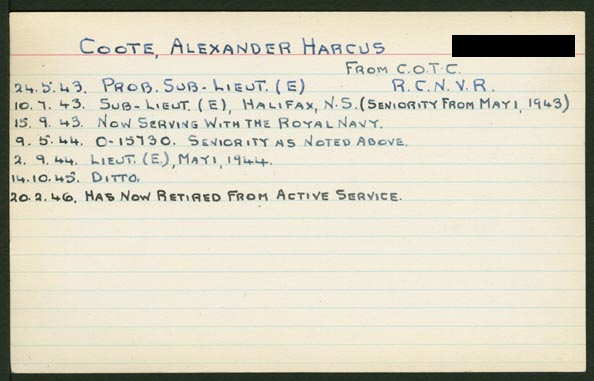 COOTE, ALEXANDER HARCUS
FROM C.O.T.C.
24.5.43. PROB. SUB-LIEUT. (E) R.C.N.V.R.
10.7.43. SUB-LIEUT. (E), HALIFAX, N.S. (SENIORITY FROM MAY 1, 1943)
15.9.43. NOW SERVING WITH THE ROYAL NAVY.
9.5.44. O-15730. SENIORITY AS NOTED ABOVE.
2.9.44. LIEUT. (E), MAY 1, 1944.
14.10.45. DITTO.
20.2.46. HAS NOW RETIRED FROM ACTIVE SERVICE.